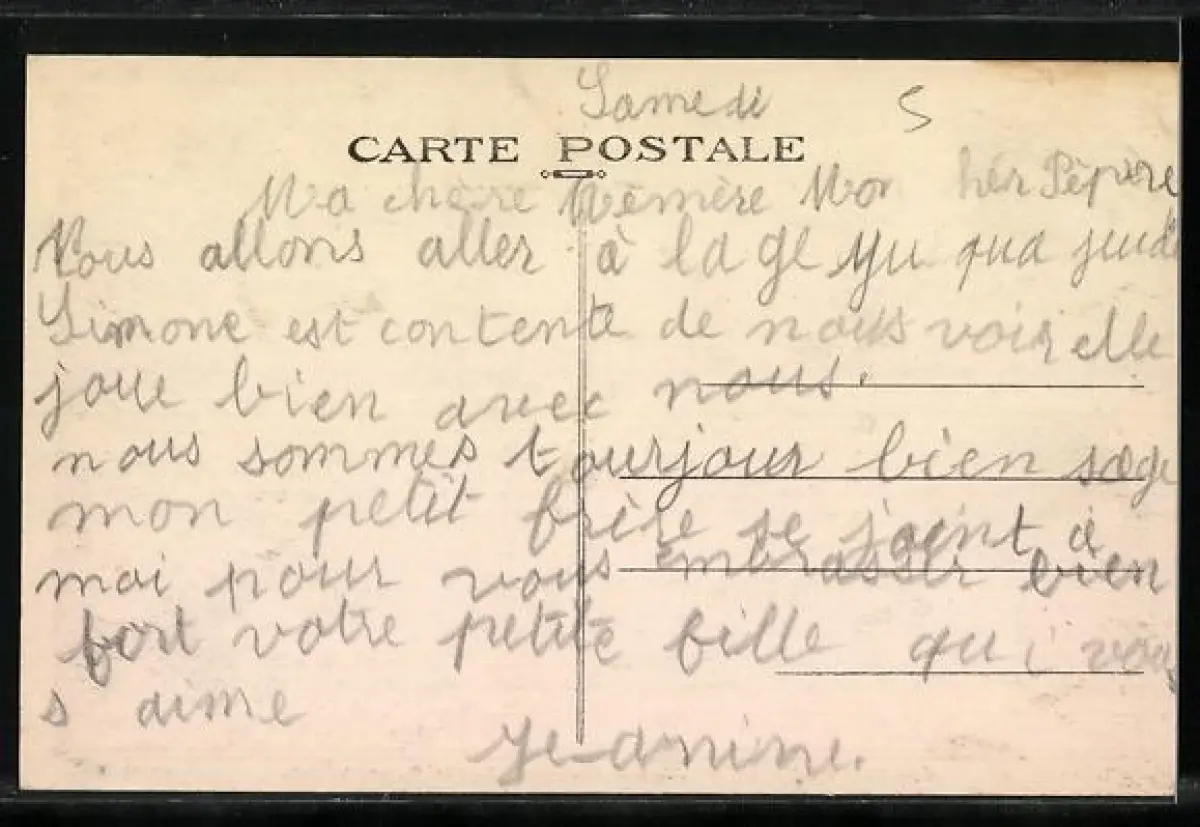 Samedi 5
CARTE POSTALE
Ma chère Mémère Mon hér Pépère
Nous allons aller à la
Simone est contente de nous voir elle
joue bien avec nous.
nous sommes tourjour bien sage
mon petit frère se joint à
moi pour vous embrasser bien
fort votre petite fille qui vous
s aime
Jeanine.